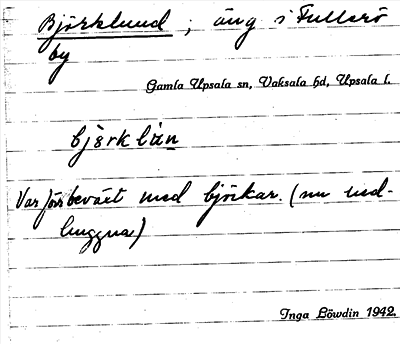 Björklund ; äng i Fullerö
by
Gamla Upsala sn, Vaksala hd, Upsala l.
björklùn
Var förr beväxt med björkar. (nu ned-
huggna)
Inga Löwdin 1942.